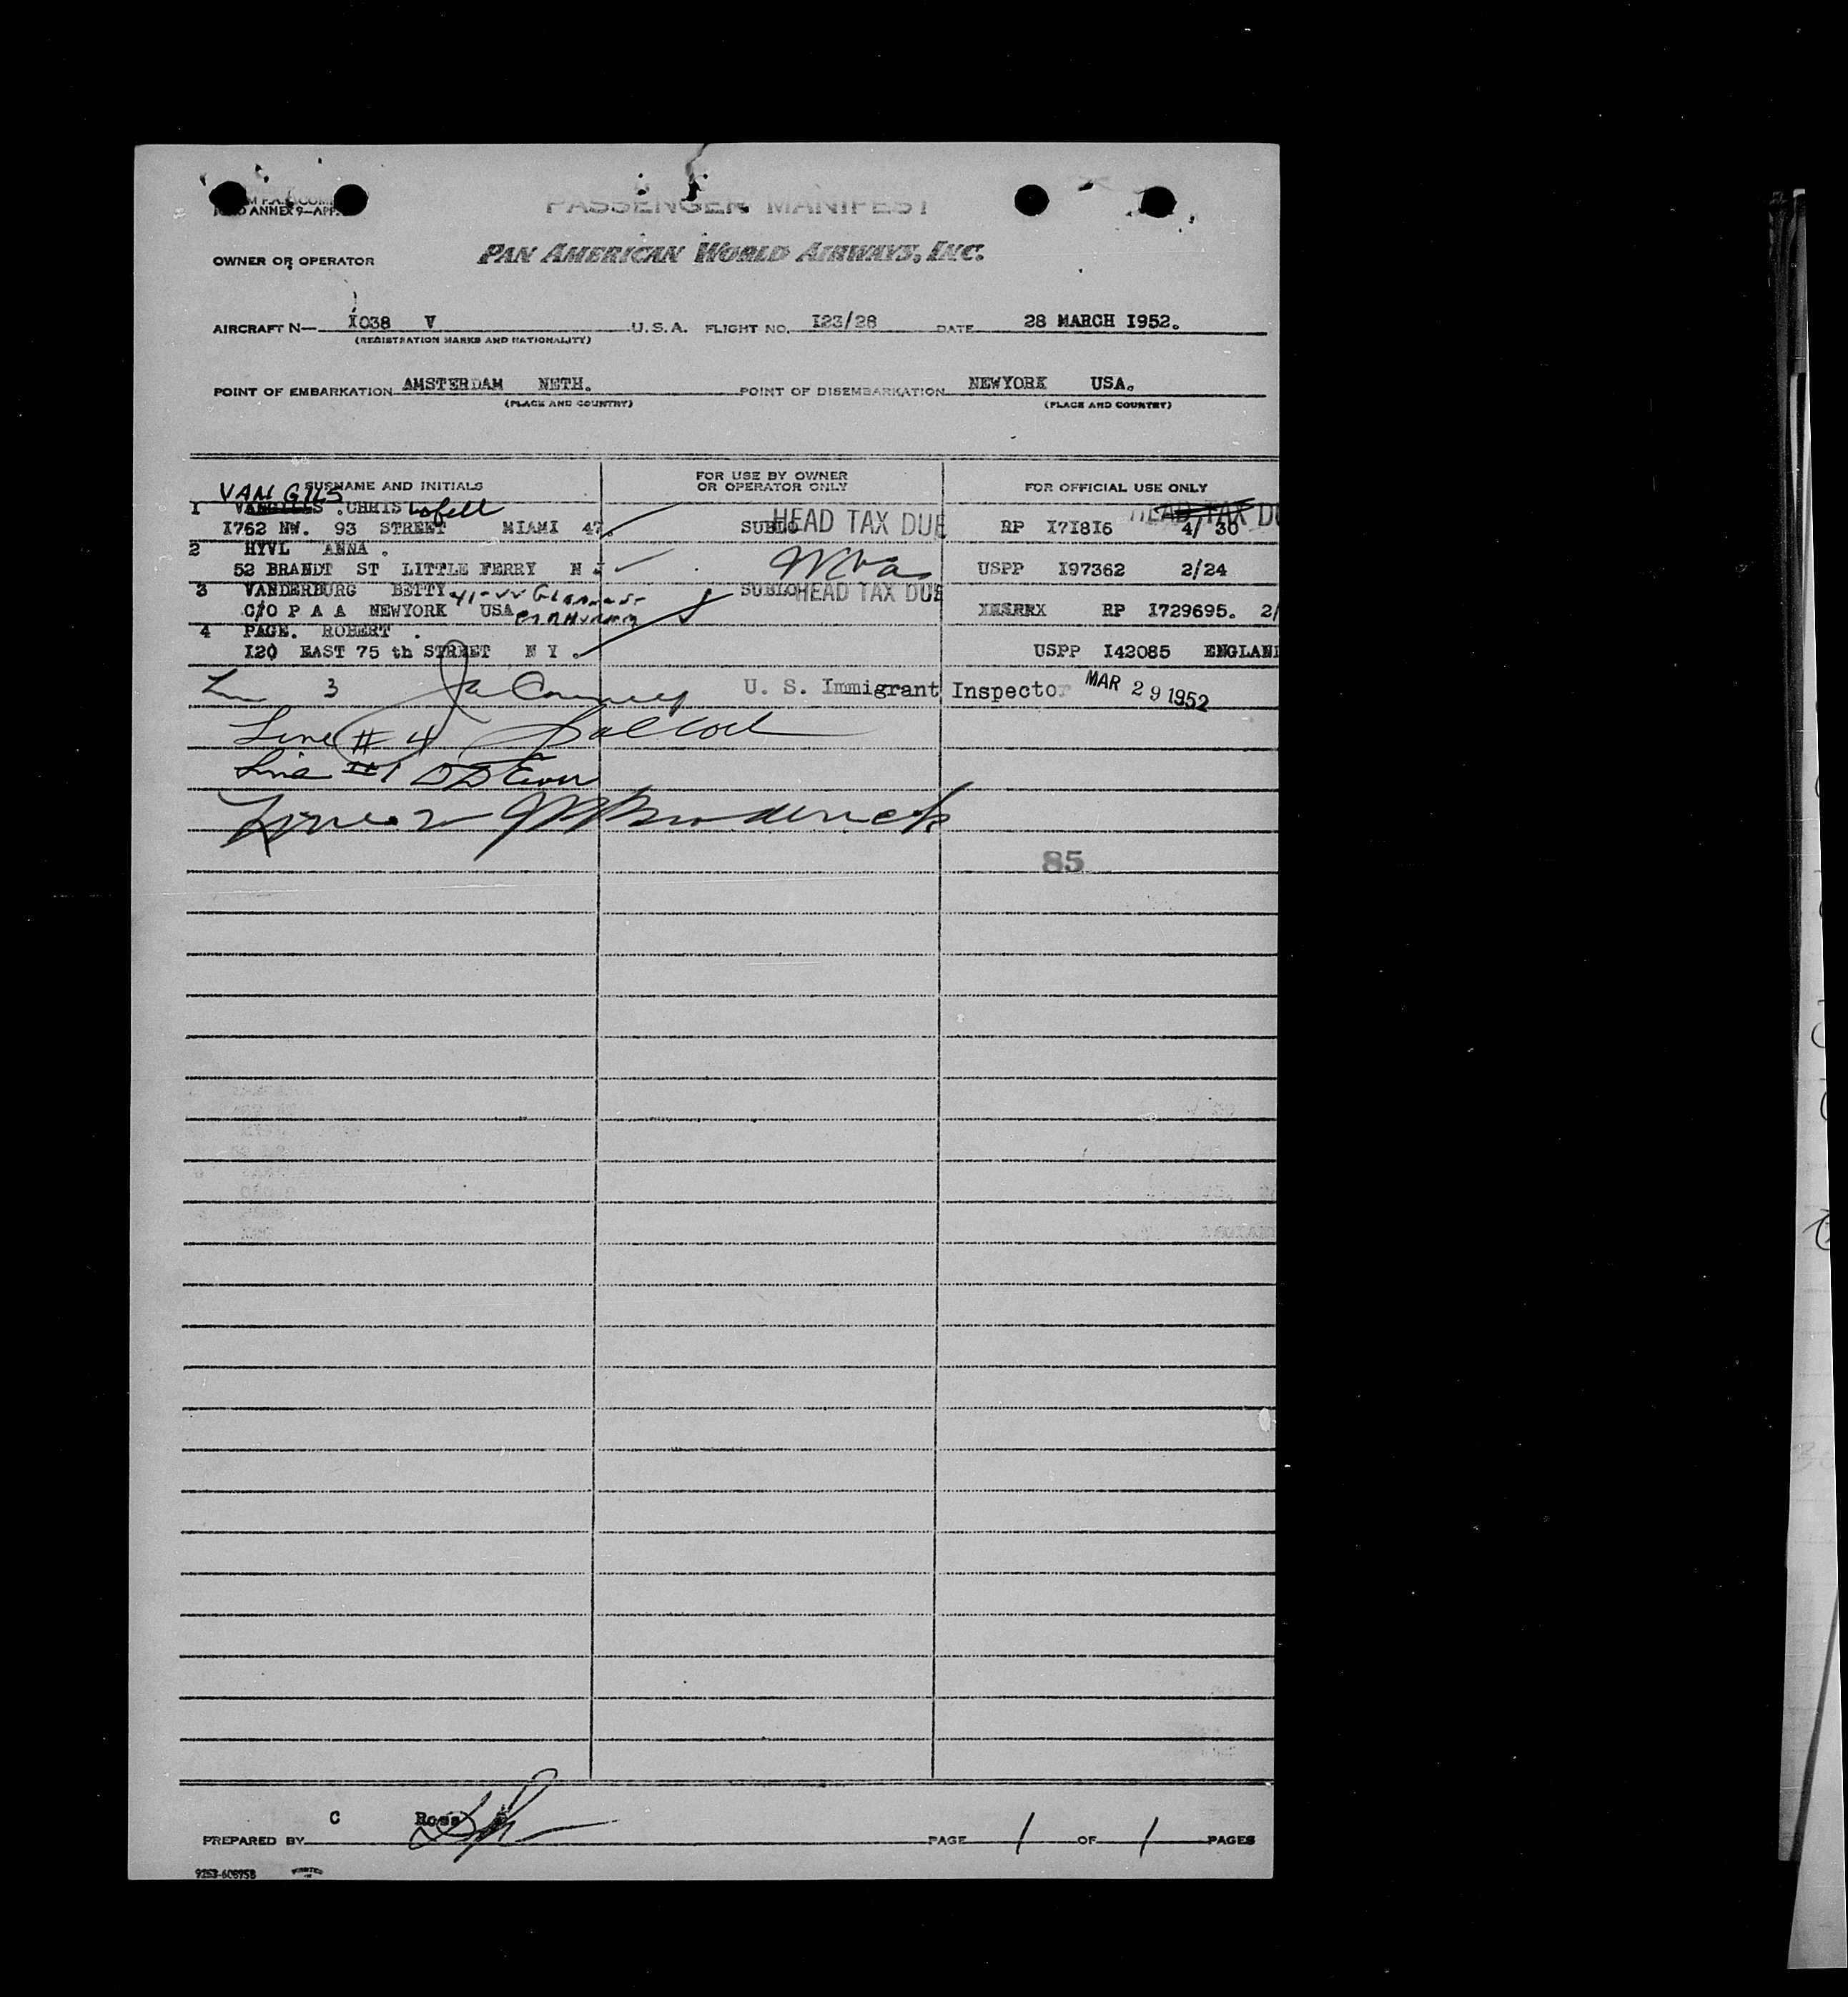 PASSENGER MANIFEST
ANNEX 9—APP.
OWNER OR OPERATOR PAN AMERICAN WORLD AIRWAYS, INC.
AIRCRAFT N— I038 V U.S.A. FLIGHT NO. I23/28 DATE 28 MARCH I952.
(REGISTRATION MARKS AND NATIONALITY)
POINT OF EMBARKATION AMSTERDAM NETH. POINT OF DISEMBARKATION NEWYORK USA.
(PLACE AND COUNTRY) (PLACE AND COUNTRY)
SURNAME AND INITIALS FOR USE BY OWNER OR OPERATOR ONLY FOR OFFICIAL USE ONLY
VAN GILS
1 .CHRIS HEAD TAX DUE HEAD TAX DU
I762 NW. 93 STREET MIAMI 47. SUBLO RP I7I8I6 4/ 30
2 HYVL ANNA .
52 BRANDT ST LITTLE FERRY N J USPP I97362 2/24
3 VANDERBURG BETTY SUBLO HEAD TAX DUE
C/O P A A NEWYORK USA RP I729695. 2/
4 PAGE. ROBERT .
I20 EAST 75 th STREET N Y . USPP I42085 ENGLAND
3 U. S. Immigrant Inspector MAR 29 1952
Line # 4
Line #1
Line 2 Broderick
85
PREPARED BY C Ross PAGE 1 OF 1 PAGES